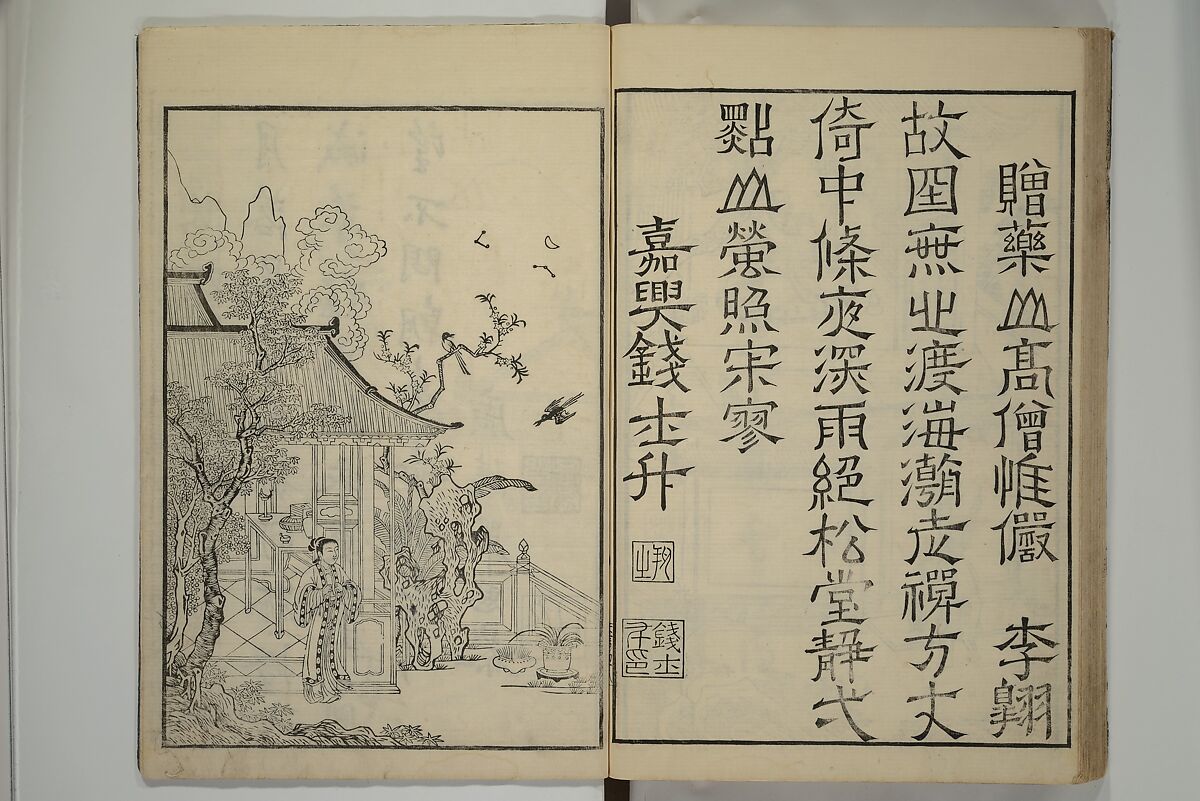 贈藥山高僧惟儼 李翺
故囯無心渡海潮老禪方丈
倚中條夜深雨絕松堂靜弌
點山螢照寂寥
嘉興錢士升
抑之
錢士升印